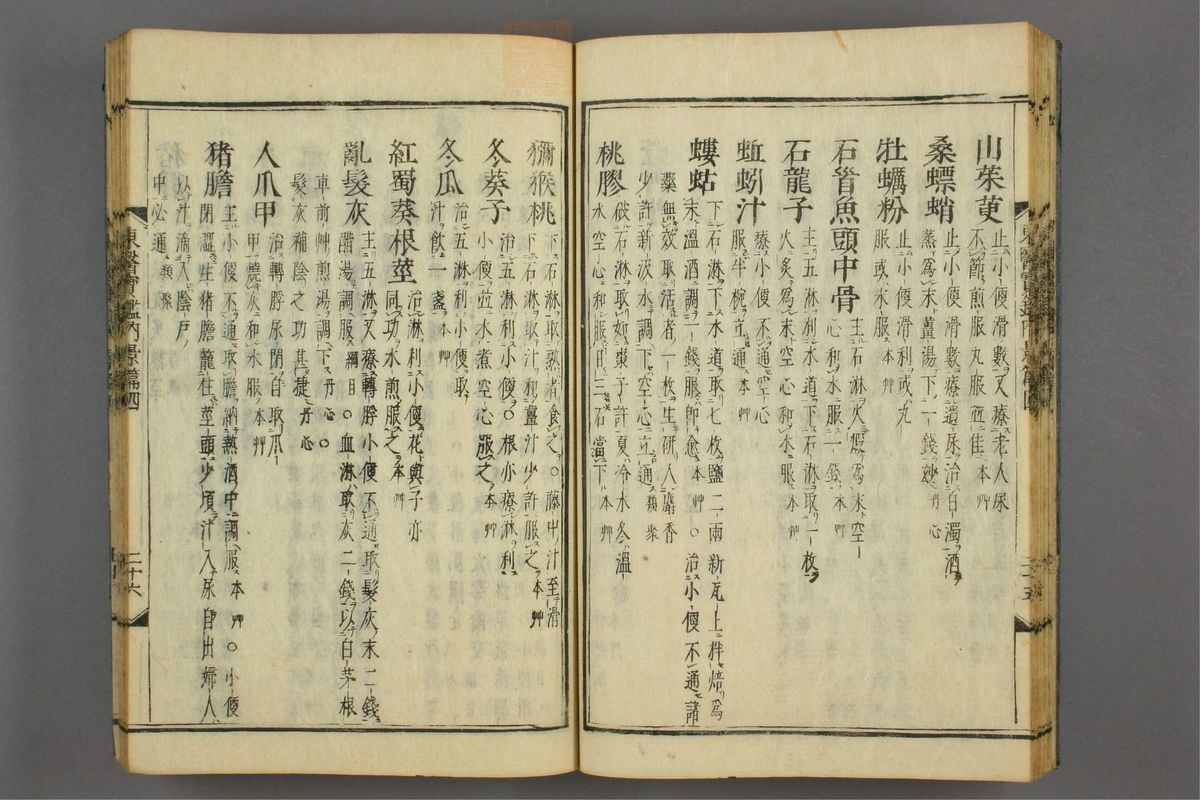 山茱萸
止小便滑數又療老人尿
不節煎服丸服並佳本艸
桑螵蛸
止小便滑數療遺尿治白濁酒
蒸爲末薑湯下一錢妙丹心
牡蠣粉
止小便滑利或丸
服或末服本艸
石首魚頭中骨
主石淋火煆爲末空
心和水服一錢本艸
石龍子
主五淋利水道下石淋取一枚
火炙爲末空心和水服本艸
蚯蚓汁
療小便不通空心
服半椀立通本艸
螻蛄
下石淋下水道取七枚鹽二兩新瓦上拌焙爲
末溫酒調一錢服卽愈本艸○治小便不通諸
藥無效取活者一枚生研入麝香
少許新汲水調下空心立通類聚
桃膠
破石淋取如棗子許夏冷水冬溫
水空心和服日三石當下本艸
獼猴桃
下石淋取汁和薑汁少許服之本艸
下石淋取熟者食之○藤中汁至滑
冬葵子
治五淋利小便○根亦療淋利
小便並水煮空心服之本艸
冬瓜
治五淋利小便取
汁飮一盞本艸
紅蜀葵根莖
治淋利小便花與子亦
同功水煎服之本艸
亂髮灰
主五淋又療轉脬小便不通取髮灰末二錢
醋湯調服綱目○血淋取灰二錢以白茅根
車前艸煎湯調下丹心○
髮灰補陰之功甚捷丹心
人爪甲
治轉脬尿閉自取爪
甲燒灰和水服本艸
猪膽
主小便不通取膽納熱酒中調服本艸○小便
閉澀生猪膽籠住莖頭少頃汁入尿自出婦人
以汁滴入陰戶
中必通類聚
東醫寶鑑內景篇四
二十六